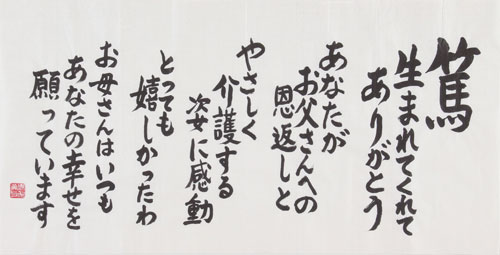 篤
生まれてくれて
ありがとう
あなたが
お父さんへの
恩返しと
やさしく
介護する
次女に感動
とっても
嬉しかったわ
お母さんはいつも
あなたの幸せを
願っています